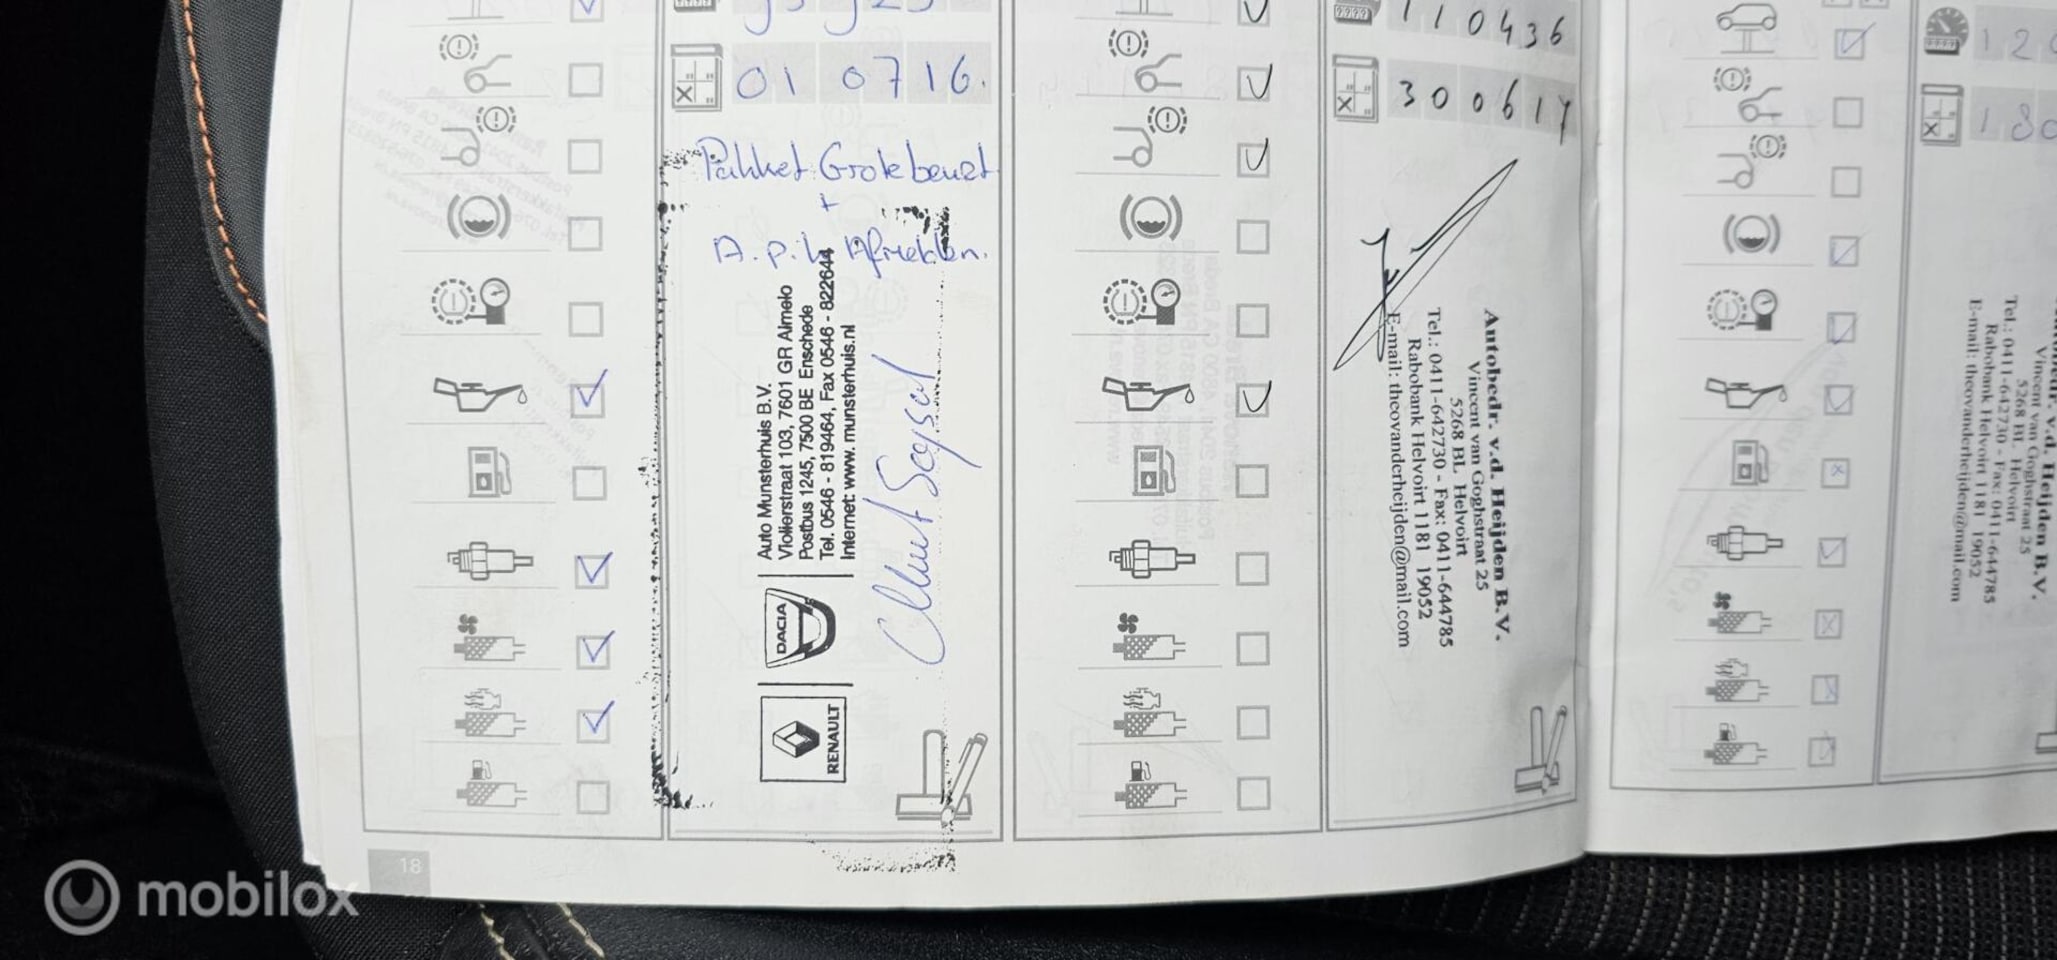 01 07 16.
Pakket Grote beurt
+
A.p.k Afmelden.
Auto Munsterhuis B.V.
Violierstraat 103, 7601 GR Almelo
Postbus 1245, 7500 BE Enschede
Tel. 0546 - 819464, Fax 0546 - 822644
Internet: www. munsterhuis.nl
DACIA
RENAULT
18
110436
300617
Autobedr. v.d. Heijden B.V.
Vincent van Goghstraat 25
5268 BL Helvoirt
Tel.: 0411-642730 - Fax: 0411-644785
Rabobank Helvoirt 1181 19052
E-mail: theovanderheijden@mail.com
v.d. Heijden B.V.
Vincent van Goghstraat 25
5268 BL Helvoirt
Tel.: 0411-642730 - Fax: 0411-644785
Rabobank Helvoirt 1181 19052
E-mail: theovanderheijden@mail.com
mobilox